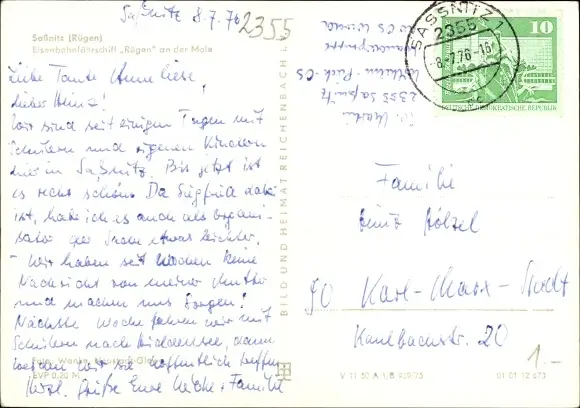 Saßnitz 8.7.76
2355
Saßnitz (Rügen)
Eisenbahnfährschiff „Rügen" an der Mole
Liebe Tante Anneliese!
Lieber Heinz!
Wir sind seit einigen Tagen mit
Schülern und eigenen Kindern
hier in Saßnitz. Bis jetzt ist
es recht schön. Da Siegfried dabei
ist, habe ich es auch als Organi-
sator der Sache etwas leichter.
- Wir haben seit Wochen keine
Nachricht von meiner Mutter
und machen uns Sorgen!
Nächste Woche fahren wir mit
Schülern nach Hiddensee, dann
werden wir sie hoffentlich treffen
Herzl. Grüße Eure Micha + Familie
EVP 0,20 M
BILD UND HEIMAT REICHENBACH i.
2355 Saßnitz
SASSNITZ 1
2355
-8.7.76-16
10
DEUTSCHE DEMOKRATISCHE REPUBLIK
Familie
Heinz Hölzel
90 Karl-Marx-Stadt
Kaulbachstr. 20
1.-
V 11 50 A 1/B 909/75
01 01 12 673